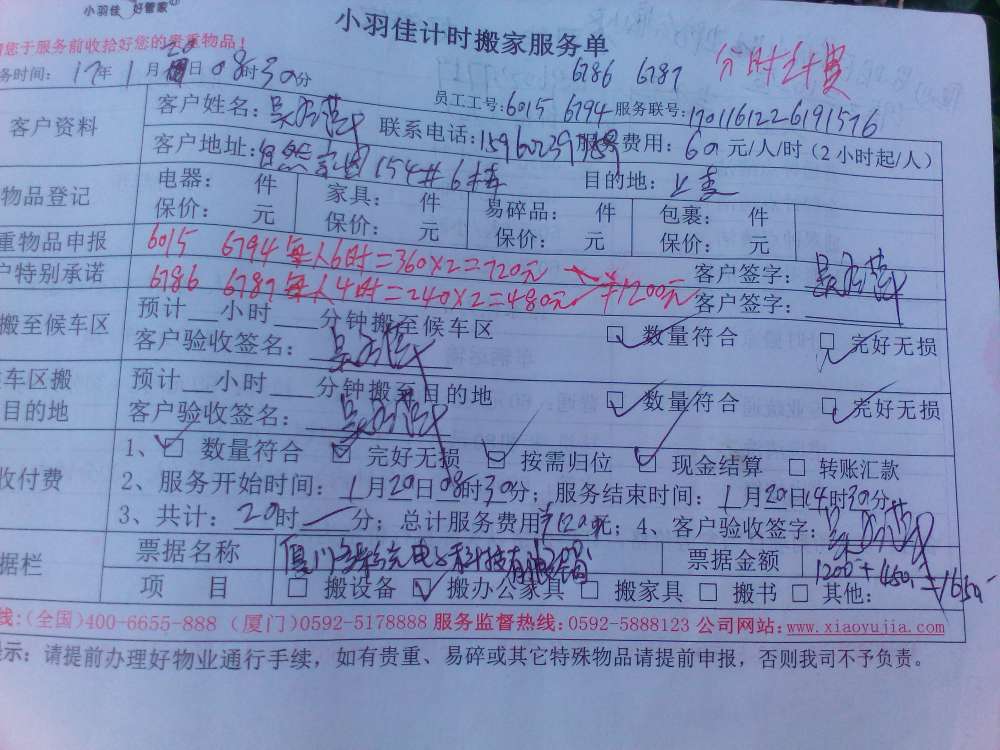 小羽佳 好管家
小羽佳计时搬家服务单
请您于服务前收拾好您的贵重物品!
分时计费
务时间: 17年1月20日08时30分
6786 6787
员工工号:6015 6794 服务联号:1701161226191576
客户资料
客户姓名:
联系电话:
服务费用: 60元/人/时(2小时起/人)
客户地址: 154# 6楼
目的地:
物品登记
电器: 件 家具: 件 易碎品: 件 包裹: 件
保价: 元 保价: 元 保价: 元 保价: 元
重物品申报
6015 6794 每人6时=360×2=720元
客户签字:
户特别承诺
6786 6787 每人4时=240×2=480元 ¥1200元
客户签字:
搬至候车区
预计 小时 分钟搬至候车区
数量符合 完好无损
客户验收签名:
车区搬
目的地
预计 小时 分钟搬至目的地
数量符合 完好无损
客户验收签名:
收付费
1、 数量符合 完好无损 按需归位 现金结算 转账汇款
2、服务开始时间: 1月20日08时30分; 服务结束时间: 1月20日14时30分
3、共计: 20时 分; 总计服务费用¥1200元; 4、客户验收签字:
据栏
票据名称 票据金额 1200+450=1650
项 目 搬设备 搬办公家具 搬家具 搬书 其他:
线:(全国)400-6655-888 (厦门)0592-5178888 服务监督热线:0592-5888123 公司网站:www.xiaoyujia.com
示: 请提前办理好物业通行手续,如有贵重、易碎或其它特殊物品请提前申报,否则我司不予负责。